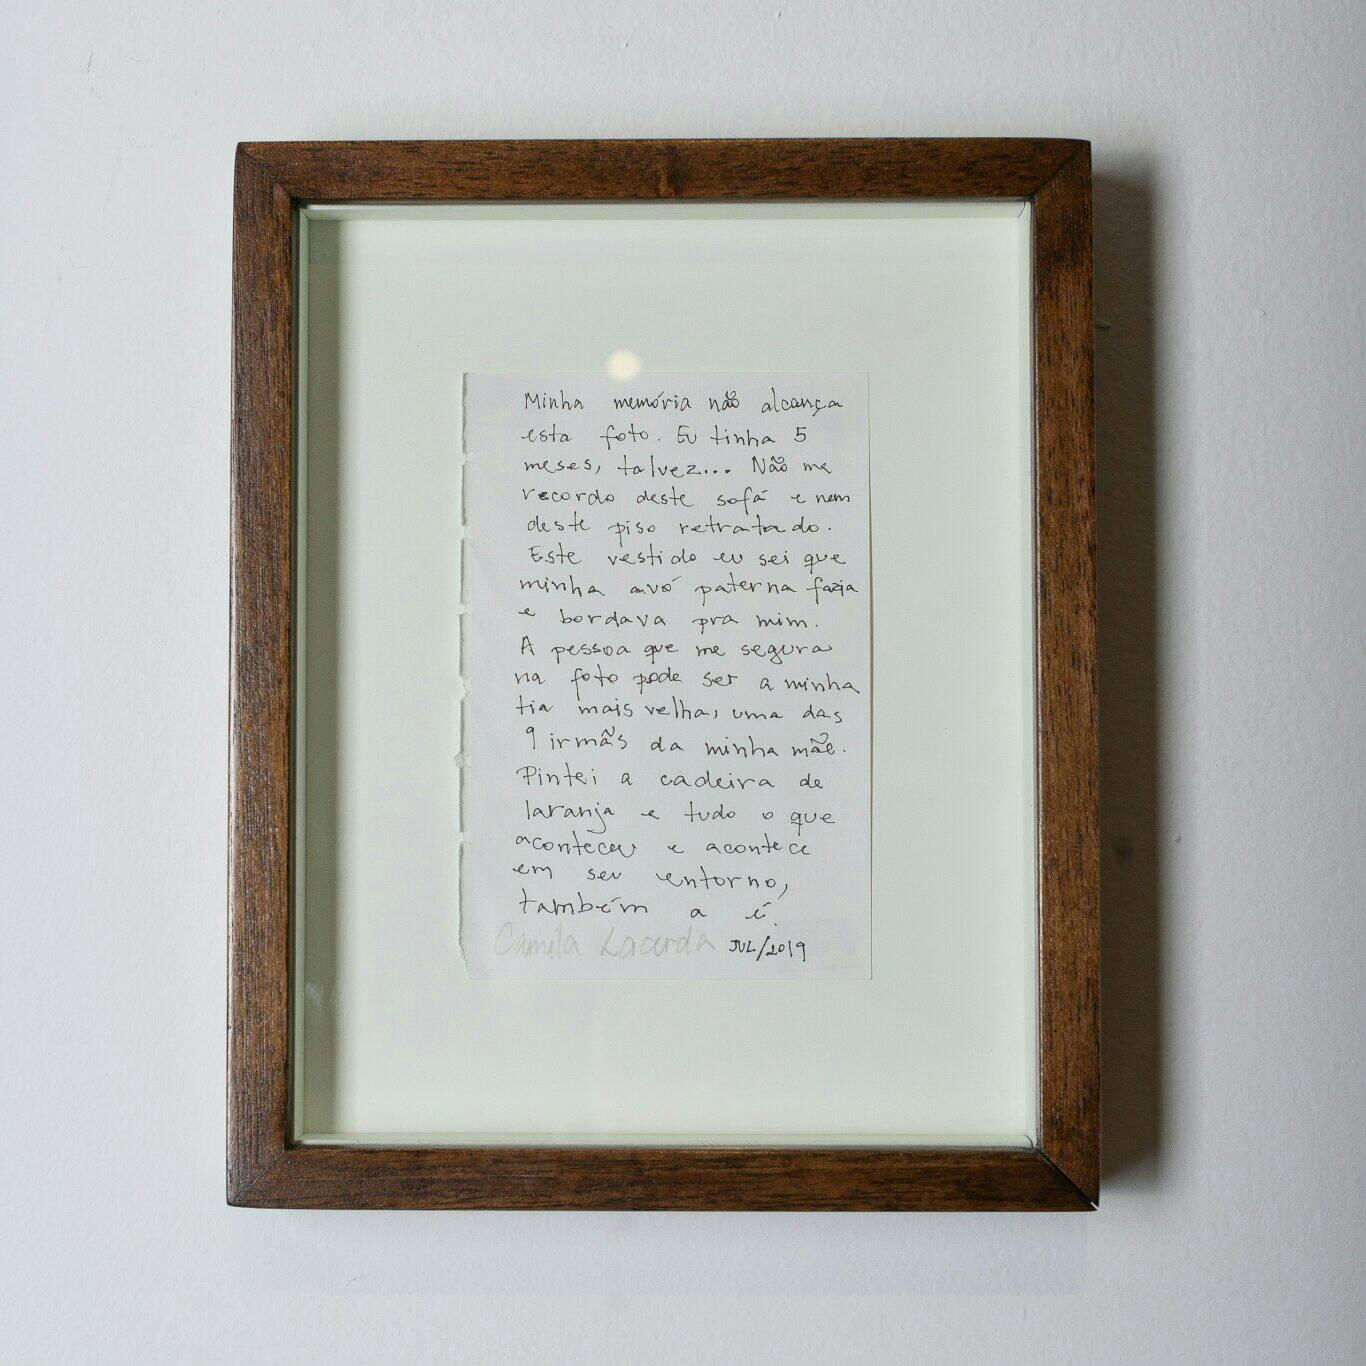 Minha memória não alcança
esta foto. Eu tinha 5
meses, talvez... Não me
recordo deste sofá e nem
deste piso retratado.
Este vestido eu sei que
minha avó paterna fazia
e bordava pra mim.
A pessoa que me segura
na foto pode ser a minha
tia mais velha, uma das
9 irmãs da minha mãe.
Pintei a cadeira de
laranja e tudo o que
aconteceu e acontece
em seu entorno,
também a é.
Camila Lacerda JUL/2019